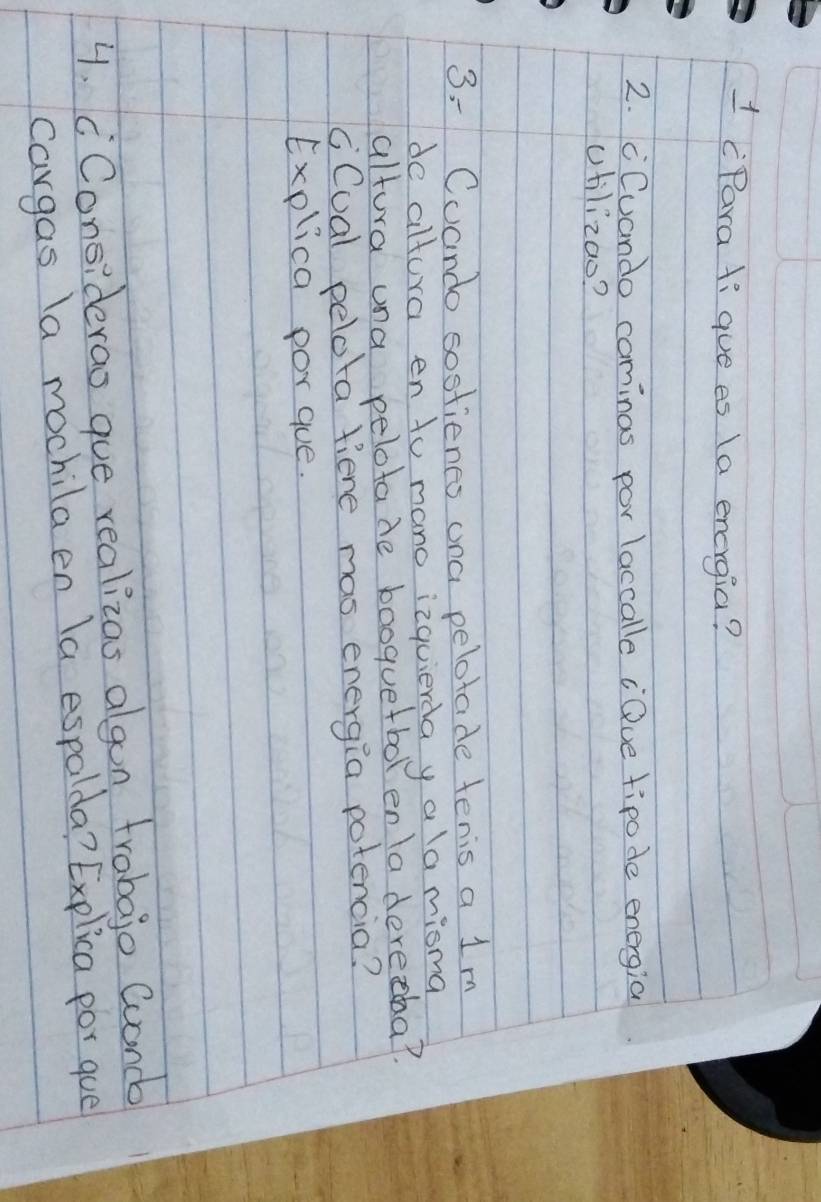 1 ¿Para ti que es la energia?
2. ¿Cuando caminas por laccalle ¿Que tipo de energia
utilizas?
3.- Cuando sostienes una pelota de tenis a 1 m
de altura en tu mano izquierda y a la misma
altura una pelota de basquetbol en la derecha?.
¿Cual pelota tiene mas energia potencia?
Explica por que.
4. ¿Consideras que realizas algun trabajo Cuando
Cargas la mochila en la espalda? Explica por que